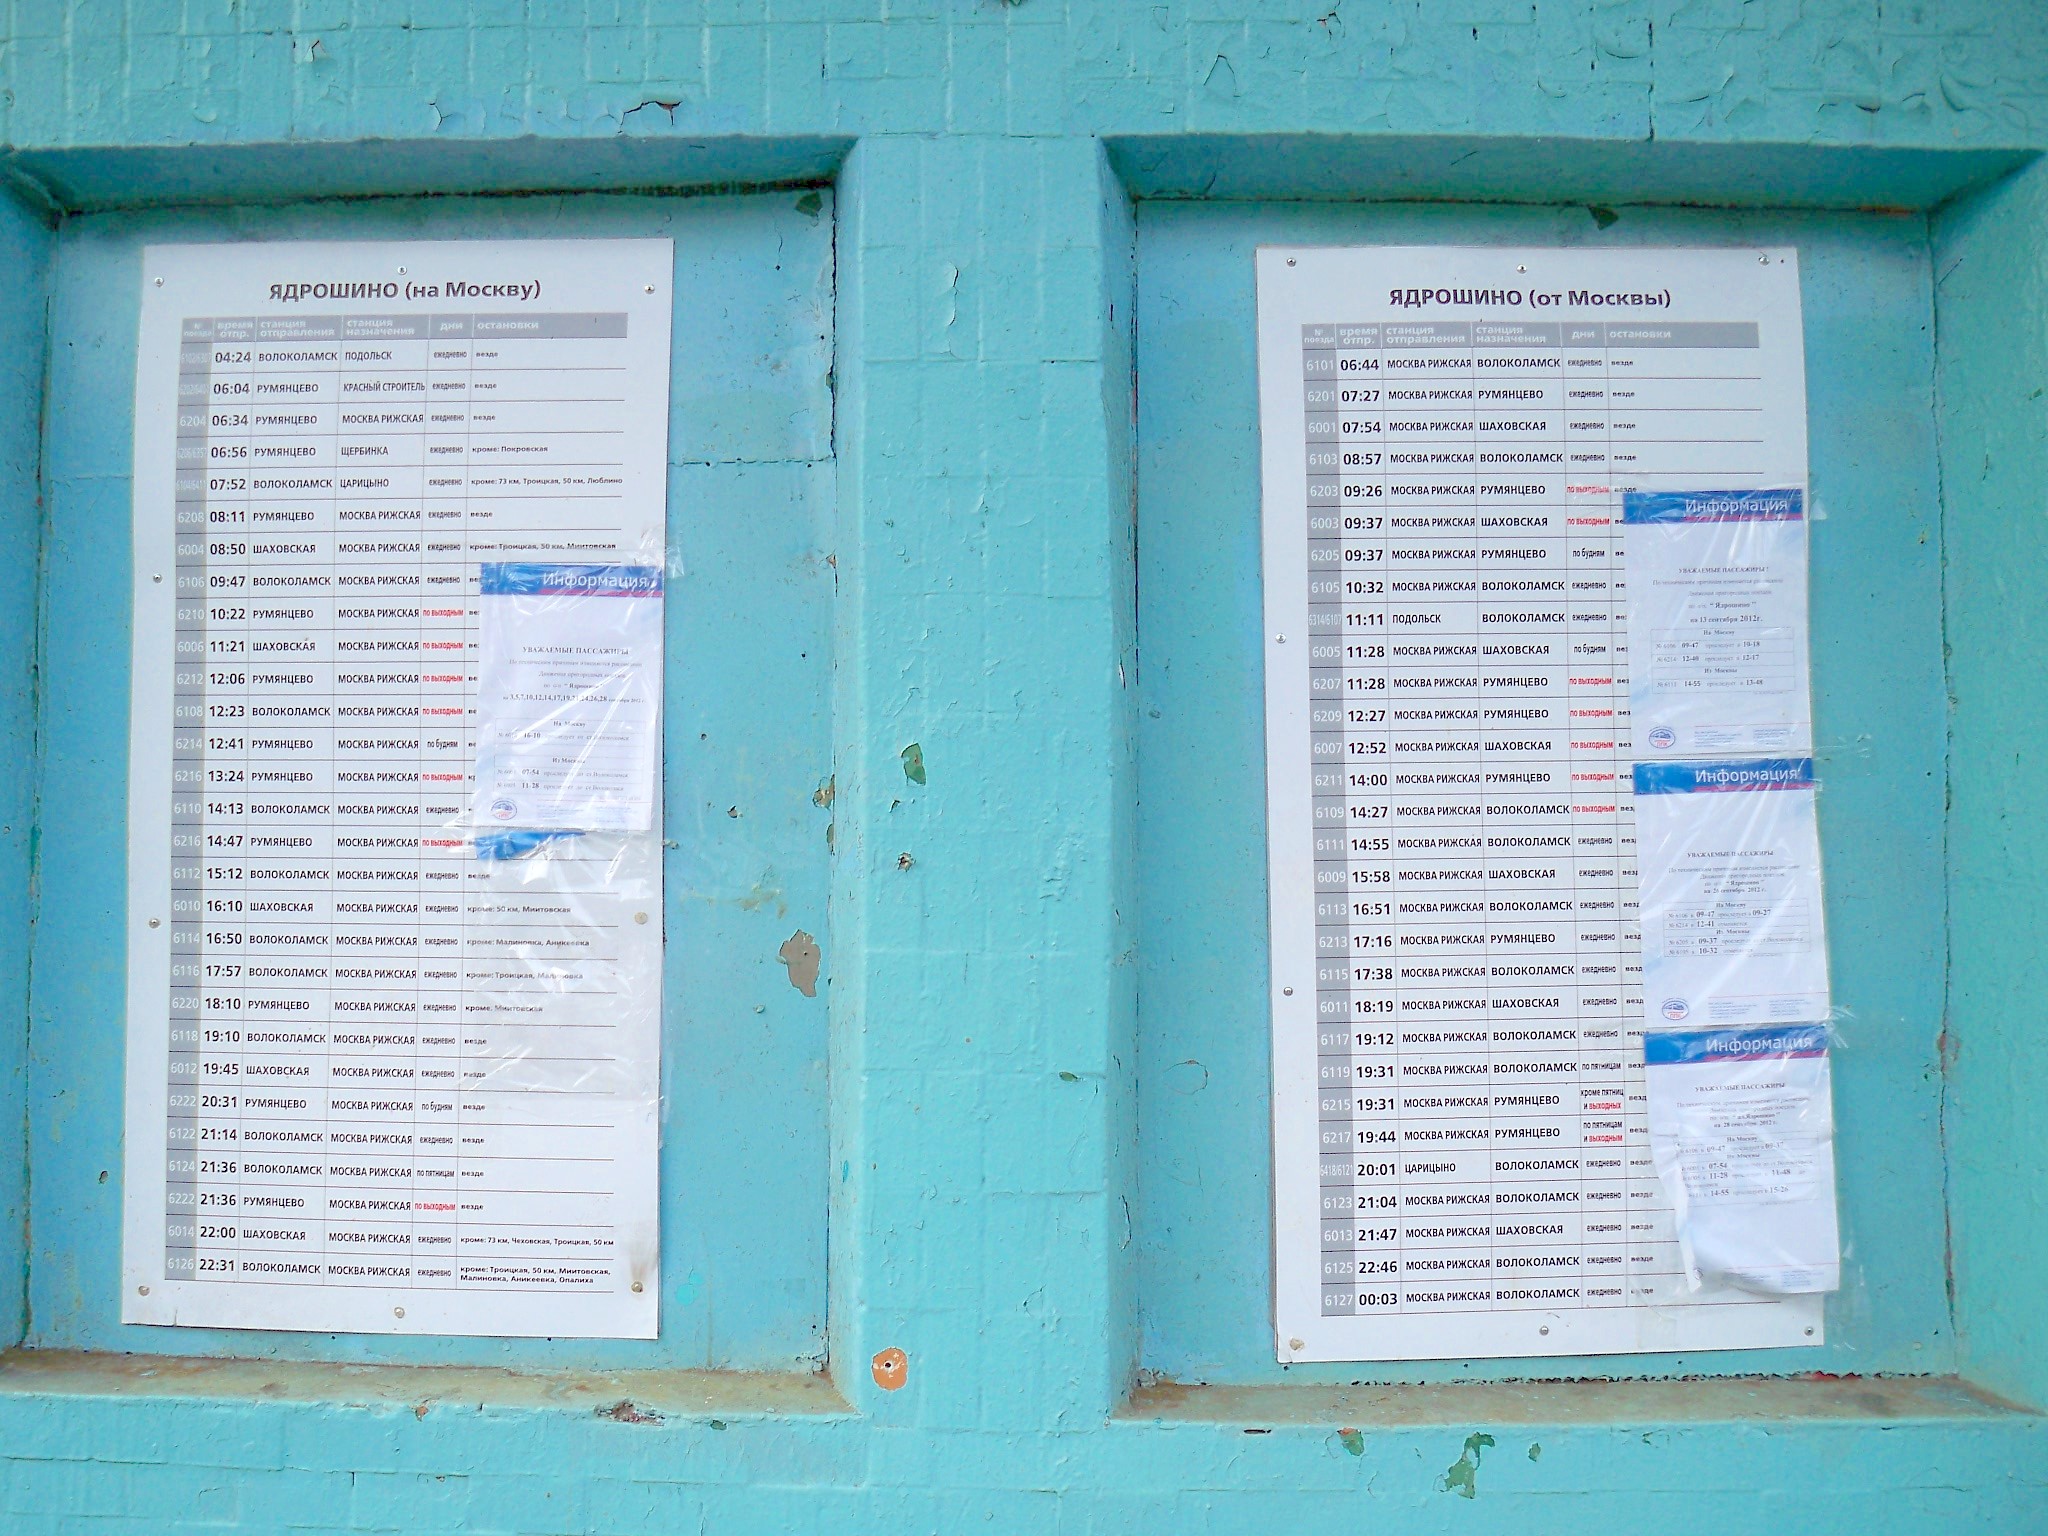 ЯДРОШИНО (на Москву)
№ поезда время отпр. станция отправления станция назначения дни остановки
04:24 ВОЛОКОЛАМСК ПОДОЛЬСК ежедневно везде
06:04 РУМЯНЦЕВО КРАСНЫЙ СТРОИТЕЛЬ ежедневно везде
6204 06:34 РУМЯНЦЕВО МОСКВА РИЖСКАЯ ежедневно везде
06:56 РУМЯНЦЕВО ЩЕРБИНКА ежедневно кроме: Покровская
07:52 ВОЛОКОЛАМСК ЦАРИЦЫНО ежедневно кроме: 73 км, Троицкая, 50 км, Люблино
6208 08:11 РУМЯНЦЕВО МОСКВА РИЖСКАЯ ежедневно везде
6004 08:50 ШАХОВСКАЯ МОСКВА РИЖСКАЯ ежедневно кроме: Троицкая, 50 км, Миитовская
6106 09:47 ВОЛОКОЛАМСК МОСКВА РИЖСКАЯ ежедневно
6210 10:22 РУМЯНЦЕВО МОСКВА РИЖСКАЯ по выходным
6006 11:21 ШАХОВСКАЯ МОСКВА РИЖСКАЯ по выходным
6212 12:06 РУМЯНЦЕВО МОСКВА РИЖСКАЯ по выходным
6108 12:23 ВОЛОКОЛАМСК МОСКВА РИЖСКАЯ по выходным
6214 12:41 РУМЯНЦЕВО МОСКВА РИЖСКАЯ по будням
6216 13:24 РУМЯНЦЕВО МОСКВА РИЖСКАЯ по выходным
6110 14:13 ВОЛОКОЛАМСК МОСКВА РИЖСКАЯ ежедневно
6216 14:47 РУМЯНЦЕВО МОСКВА РИЖСКАЯ по выходным
6112 15:12 ВОЛОКОЛАМСК МОСКВА РИЖСКАЯ ежедневно везде
6010 16:10 ШАХОВСКАЯ МОСКВА РИЖСКАЯ ежедневно кроме: 50 км, Миитовская
6114 16:50 ВОЛОКОЛАМСК МОСКВА РИЖСКАЯ ежедневно кроме: Малиновка, Аникеевка
6116 17:57 ВОЛОКОЛАМСК МОСКВА РИЖСКАЯ ежедневно кроме: Троицкая, Малиновка
6220 18:10 РУМЯНЦЕВО МОСКВА РИЖСКАЯ ежедневно кроме: Миитовская
6118 19:10 ВОЛОКОЛАМСК МОСКВА РИЖСКАЯ ежедневно везде
6012 19:45 ШАХОВСКАЯ МОСКВА РИЖСКАЯ ежедневно везде
6222 20:31 РУМЯНЦЕВО МОСКВА РИЖСКАЯ по будням везде
6122 21:14 ВОЛОКОЛАМСК МОСКВА РИЖСКАЯ ежедневно везде
6124 21:36 ВОЛОКОЛАМСК МОСКВА РИЖСКАЯ по пятницам везде
6222 21:36 РУМЯНЦЕВО МОСКВА РИЖСКАЯ по выходным везде
6014 22:00 ШАХОВСКАЯ МОСКВА РИЖСКАЯ ежедневно кроме: 73 км, Чеховская, Троицкая, 50 км
6126 22:31 ВОЛОКОЛАМСК МОСКВА РИЖСКАЯ ежедневно кроме: Троицкая, 50 км, Миитовская,
Малиновка, Аникеевка, Опалиха
Информация
УВАЖАЕМЫЕ ПАССАЖИРЫ!
По техническим причинам изменяется расписание
Движения пригородных поездов
по о/п " Ядрошино "
На Москву
16-10
Из Москвы
07-54
11-28
ЯДРОШИНО (от Москвы)
№ поезда время отпр. станция отправления станция назначения дни остановки
6101 06:44 МОСКВА РИЖСКАЯ ВОЛОКОЛАМСК ежедневно везде
6201 07:27 МОСКВА РИЖСКАЯ РУМЯНЦЕВО ежедневно везде
6001 07:54 МОСКВА РИЖСКАЯ ШАХОВСКАЯ ежедневно везде
6103 08:57 МОСКВА РИЖСКАЯ ВОЛОКОЛАМСК ежедневно везде
6203 09:26 МОСКВА РИЖСКАЯ РУМЯНЦЕВО по выходным везде
6003 09:37 МОСКВА РИЖСКАЯ ШАХОВСКАЯ по выходным
6205 09:37 МОСКВА РИЖСКАЯ РУМЯНЦЕВО по будням
6105 10:32 МОСКВА РИЖСКАЯ ВОЛОКОЛАМСК ежедневно
6314/6107 11:11 ПОДОЛЬСК ВОЛОКОЛАМСК ежедневно
6005 11:28 МОСКВА РИЖСКАЯ ШАХОВСКАЯ по будням
6207 11:28 МОСКВА РИЖСКАЯ РУМЯНЦЕВО по выходным
6209 12:27 МОСКВА РИЖСКАЯ РУМЯНЦЕВО по выходным
6007 12:52 МОСКВА РИЖСКАЯ ШАХОВСКАЯ по выходным
6211 14:00 МОСКВА РИЖСКАЯ РУМЯНЦЕВО по выходным
6109 14:27 МОСКВА РИЖСКАЯ ВОЛОКОЛАМСК по выходным
6111 14:55 МОСКВА РИЖСКАЯ ВОЛОКОЛАМСК ежедневно
6009 15:58 МОСКВА РИЖСКАЯ ШАХОВСКАЯ ежедневно
6113 16:51 МОСКВА РИЖСКАЯ ВОЛОКОЛАМСК ежедневно
6213 17:16 МОСКВА РИЖСКАЯ РУМЯНЦЕВО ежедневно
6115 17:38 МОСКВА РИЖСКАЯ ВОЛОКОЛАМСК ежедневно
6011 18:19 МОСКВА РИЖСКАЯ ШАХОВСКАЯ ежедневно
6117 19:12 МОСКВА РИЖСКАЯ ВОЛОКОЛАМСК ежедневно
6119 19:31 МОСКВА РИЖСКАЯ ВОЛОКОЛАМСК по пятницам
6215 19:31 МОСКВА РИЖСКАЯ РУМЯНЦЕВО кроме пятниц и выходных
6217 19:44 МОСКВА РИЖСКАЯ РУМЯНЦЕВО по пятницам и выходным
6418/6121 20:01 ЦАРИЦЫНО ВОЛОКОЛАМСК ежедневно везде
6123 21:04 МОСКВА РИЖСКАЯ ВОЛОКОЛАМСК ежедневно везде
6013 21:47 МОСКВА РИЖСКАЯ ШАХОВСКАЯ ежедневно везде
6125 22:46 МОСКВА РИЖСКАЯ ВОЛОКОЛАМСК ежедневно везде
6127 00:03 МОСКВА РИЖСКАЯ ВОЛОКОЛАМСК ежедневно везде
Информация
УВАЖАЕМЫЕ ПАССАЖИРЫ!
По техническим причинам изменяется расписание
Движения пригородных поездов
по о/п " Ядрошино "
на 13 сентября 2012г.
На Москву
№ 6106 09-47 проследует в 10-18
№ 6214 12-40 проследует в 12-17
Из Москвы
№ 6111 14-55 проследует в 13-48
Информация
УВАЖАЕМЫЕ ПАССАЖИРЫ
По техническим причинам изменяется расписание
Движения пригородных поездов
по о/п " Ядрошино "
на 26 сентября 2012 г.
На Москву
№ 6106 в 09-47 проследует в 09-27
№ 6214 в 12-41
Из Москвы
№ 6205 в 09-37
№ 6105 в 10-32
Информация
УВАЖАЕМЫЕ ПАССАЖИРЫ
на 28 сентября 2012 г.
На Москву
09-47
07-54
11-28
14-55 15-26